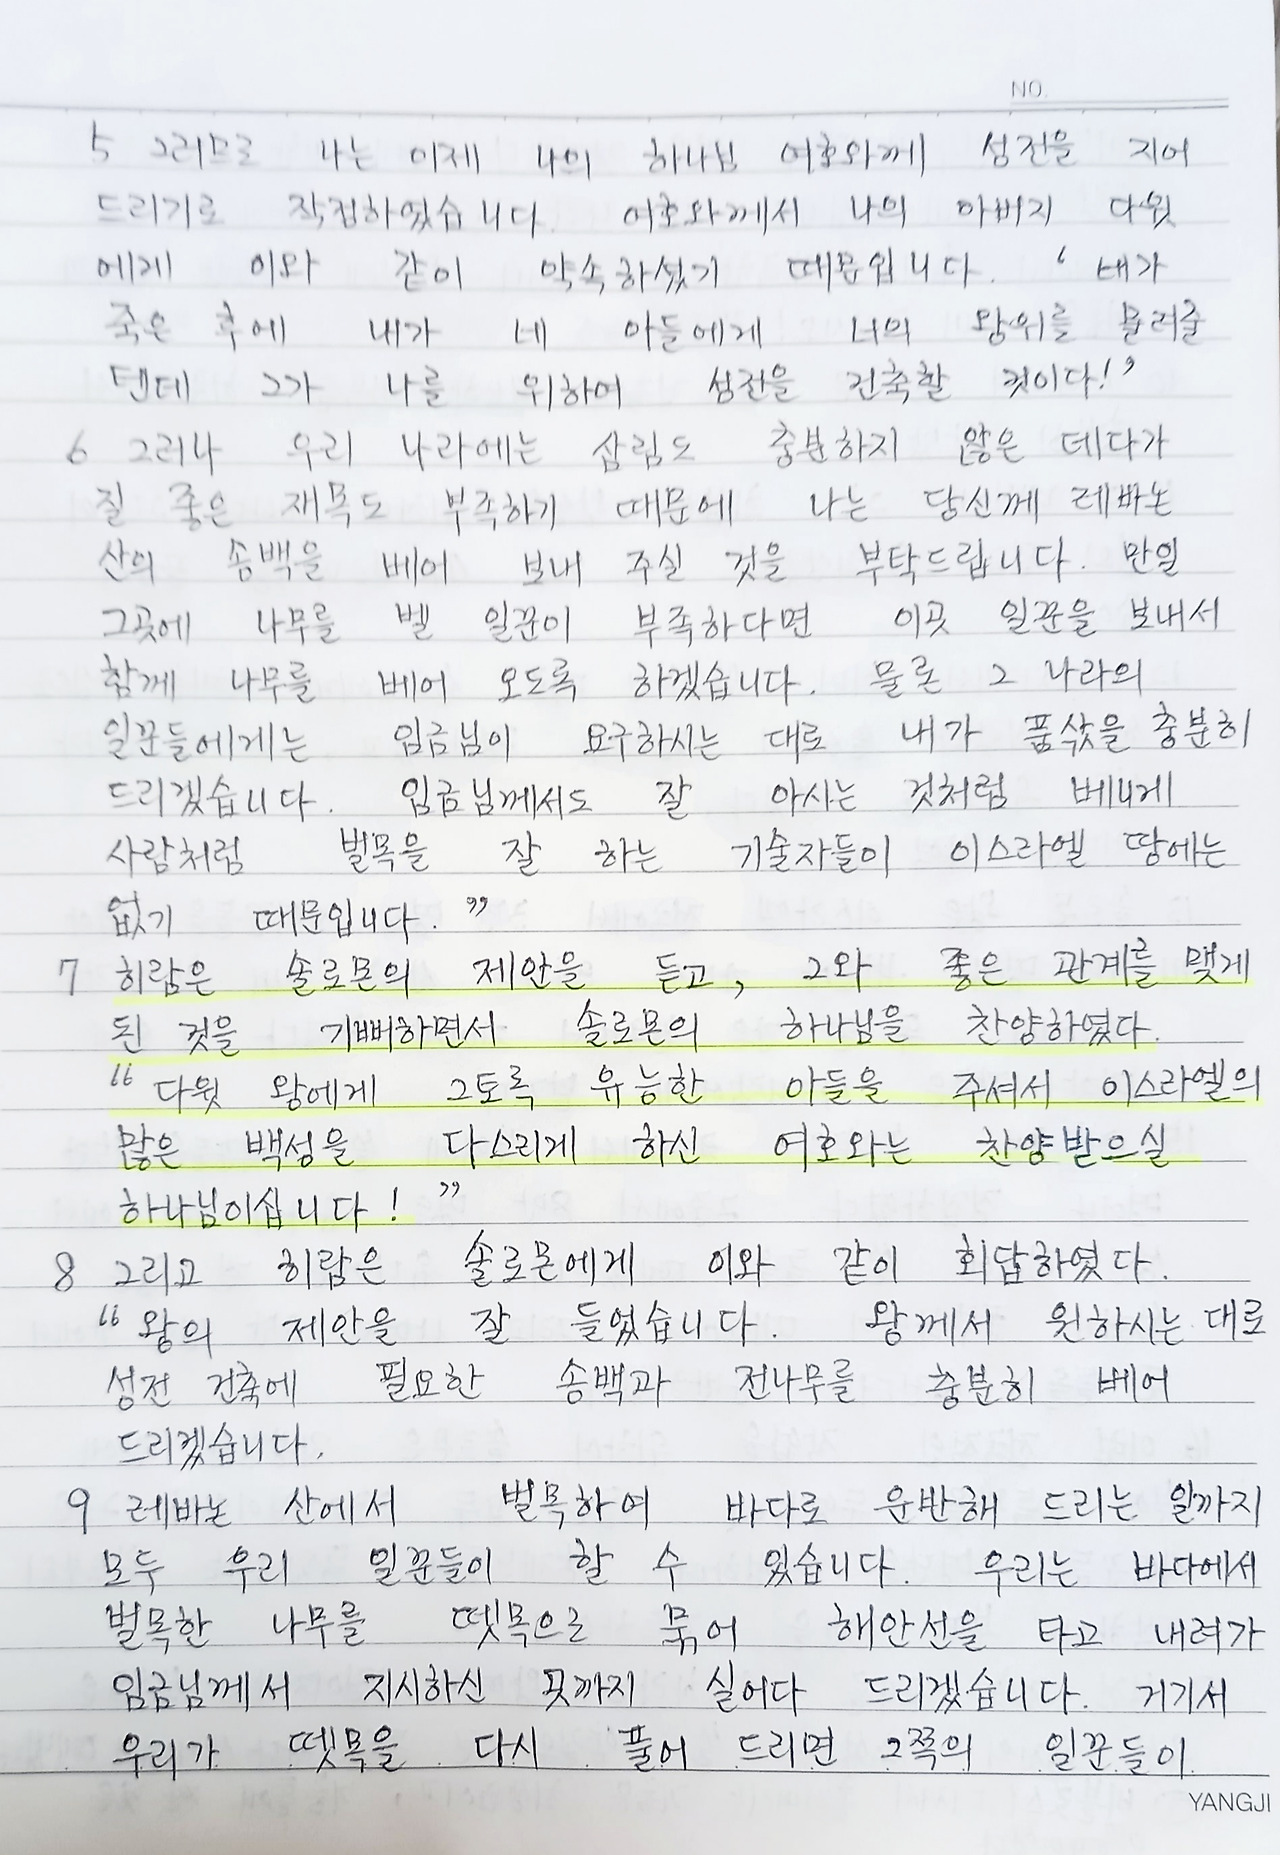 NO.
5 그러므로 나는 이제 나의 하나님 여호와께 성전을 지어
드리기로 작정하였습니다. 여호와께서 나의 아버지 다윗
에게 이와 같이 약속하셨기 때문입니다. ‘네가
죽은 후에 내가 네 아들에게 너의 왕위를 물려줄
텐데 그가 나를 위하여 성전을 건축할 것이다!’
6 그러나 우리 나라에는 삼림도 충분하지 않은 데다가
질 좋은 재목도 부족하기 때문에 나는 당신께 레바논
산의 송백을 베어 보내 주실 것을 부탁드립니다. 만일
그곳에 나무를 벨 일꾼이 부족하다면 이곳 일꾼을 보내서
함께 나무를 베어 오도록 하겠습니다. 물론 그 나라의
일꾼들에게는 임금님이 요구하시는 대로 내가 품삯을 충분히
드리겠습니다. 임금님께서도 잘 아시는 것처럼 베니게
사람처럼 벌목을 잘 하는 기술자들이 이스라엘 땅에는
없기 때문입니다.”
7 히람은 솔로몬의 제안을 듣고, 그와 좋은 관계를 맺게
된 것을 기뻐하면서 솔로몬의 하나님을 찬양하였다.
“다윗 왕에게 그토록 유능한 아들을 주셔서 이스라엘의
많은 백성을 다스리게 하신 여호와는 찬양받으실
하나님이십니다!”
8 그리고 히람은 솔로몬에게 이와 같이 회답하였다.
“왕의 제안을 잘 들었습니다. 왕께서 원하시는 대로
성전 건축에 필요한 송백과 전나무를 충분히 베어
드리겠습니다.
9 레바논 산에서 벌목하여 바다로 운반해 드리는 일까지
모두 우리 일꾼들이 할 수 있습니다. 우리는 바다에서
벌목한 나무를 뗏목으로 묶어 해안선을 타고 내려가
임금님께서 지시하신 곳까지 실어다 드리겠습니다. 거기서
우리가 뗏목을 다시 풀어 드리면 그쪽의 일꾼들이
YANGJI